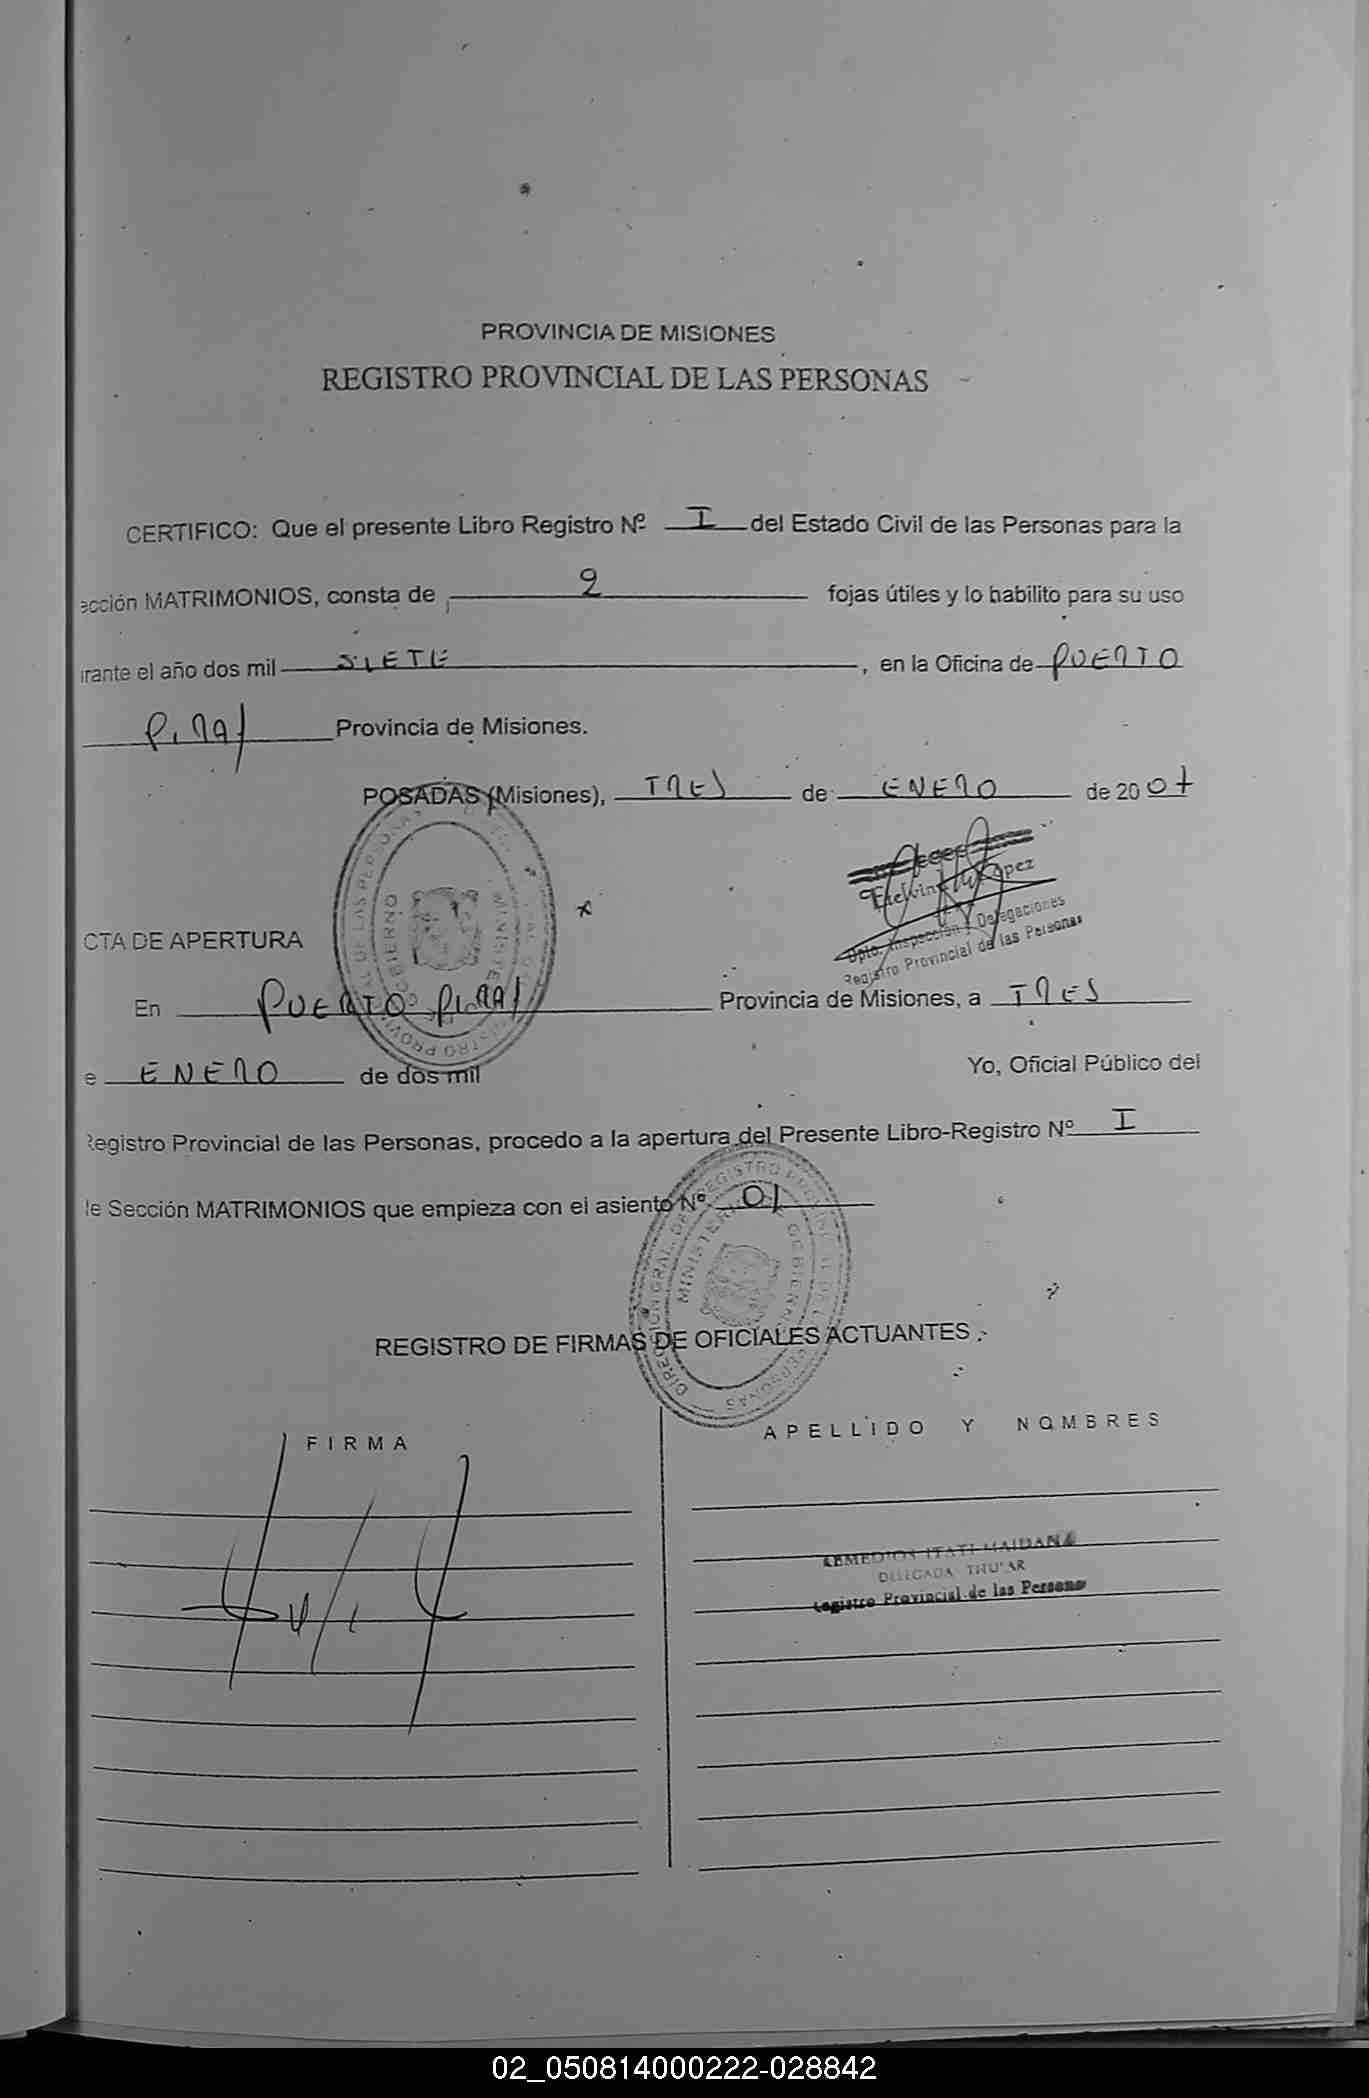 PROVINCIA DE MISIONES
REGISTRO PROVINCIAL DE LAS PERSONAS
CERTIFICO: Que el presente Libro Registro Nº I del Estado Civil de las Personas para la
ección MATRIMONIOS, consta de 2 fojas útiles y lo habilito para su uso
urante el año dos mil SIETE, en la Oficina de PUERTO
PIRAY Provincia de Misiones.
POSADAS (Misiones), TRES de ENERO de 2007
López
Dpto. Inspección y Delegaciones
Registro Provincial de las Personas
CTA DE APERTURA
En PUERTO PIRAY Provincia de Misiones, a TRES
e ENERO de dos mil Yo, Oficial Público del
Registro Provincial de las Personas, procedo a la apertura del Presente Libro-Registro Nº I
de Sección MATRIMONIOS que empieza con el asiento Nº 01
REGISTRO DE FIRMAS DE OFICIALES ACTUANTES
FIRMA
APELLIDO Y NOMBRES
REMEDIOS ITATI MAIDANA
DELEGADA TITULAR
Registro Provincial de las Persona
02_050814000222-028842